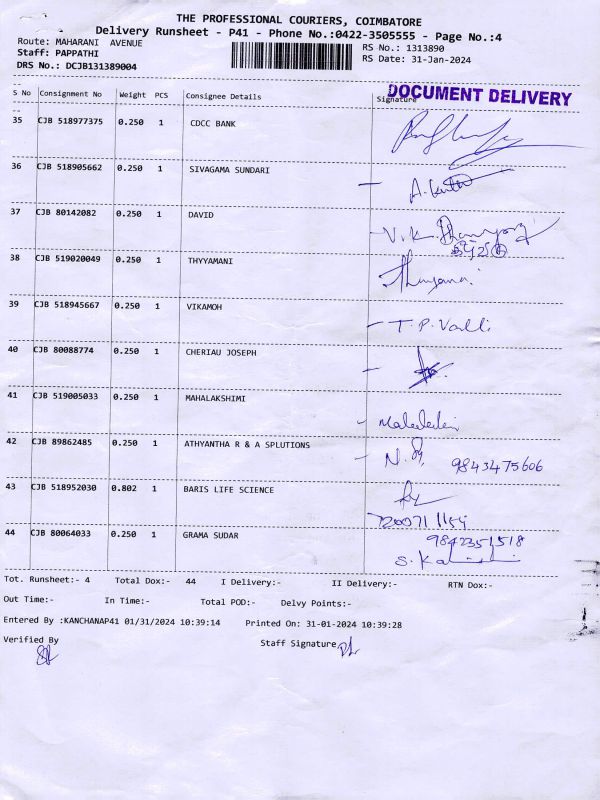 THE PROFESSIONAL COURIERS, COIMBATORE
Delivery Runsheet - P41 - Phone No.:0422-3505555 - Page No.:4
Route: MAHARANI AVENUE RS No.: 1313890
Staff: PAPPATHI RS Date: 31-Jan-2024
DRS No.: DCJB131389004
DOCUMENT DELIVERY
S No Consignment No Weight PCS Consignee Details Signature
35 CJB 518977375 0.250 1 CDCC BANK
36 CJB 518905662 0.250 1 SIVAGAMA SUNDARI
37 CJB 80142082 0.250 1 DAVID
38 CJB 519020049 0.250 1 THYYAMANI
39 CJB 518945667 0.250 1 VIKAMOH T.P. Valli
40 CJB 80088774 0.250 1 CHERIAU JOSEPH
41 CJB 519005033 0.250 1 MAHALAKSHIMI
42 CJB 89862485 0.250 1 ATHYANTHA R & A SPLUTIONS 9843475606
43 CJB 518952030 0.802 1 BARIS LIFE SCIENCE
44 CJB 80064033 0.250 1 GRAMA SUDAR 9842351518
Tot. Runsheet:- 4 Total Dox:- 44 I Delivery:- II Delivery:- RTN Dox:-
Out Time:- In Time:- Total POD:- Delvy Points:-
Entered By :KANCHANAP41 01/31/2024 10:39:14 Printed On: 31-01-2024 10:39:28
Verified By Staff Signature